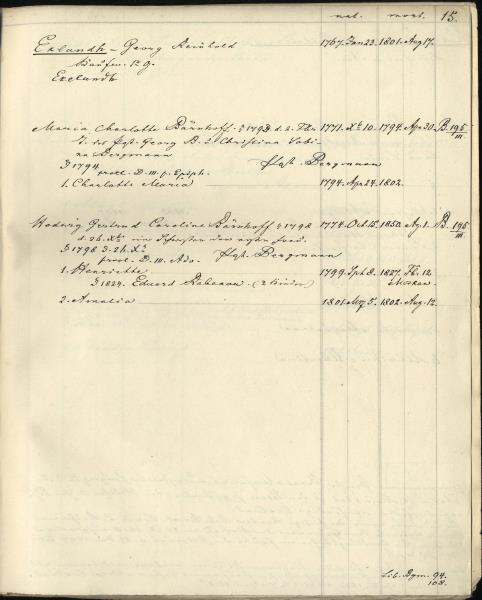 nat. mort. 15.
Exlandt - Georg Reinhold 1767. Jan 23. 1801. Aug 17.
Kaufm. 1 G.
Exelandt
Maria Charlotte Bärnhoff 1793 d. 2. 1771. Xb 10. 1794. Apr 20. B. 195/III.
T. des Past. Georg B. & Christina Sabi-
na Bergmann Past. Bergmann
1794
procl. D. III. p. Epiph.
1. Charlotte Maria 1794. Apr 24. 1802.
Hedwig Gertrud Caroline Bärnhoff 1798 1774. Oct. 15. 1850. Ag. 1. B. 195/III.
d. 26. Xb eine Schwester der ersten Frau.
1798 d. 26. Xb Past. Bergmann
procl. D. III. Adv.
1. Henriette 1799. Spt 8. 1827. Fb. 12
1824. Eduard (2 Kinder) Moskau.
2. Amalia 1801. My. 5. 1802. Aug. 12.
Lib. Bgm. 94.
108.